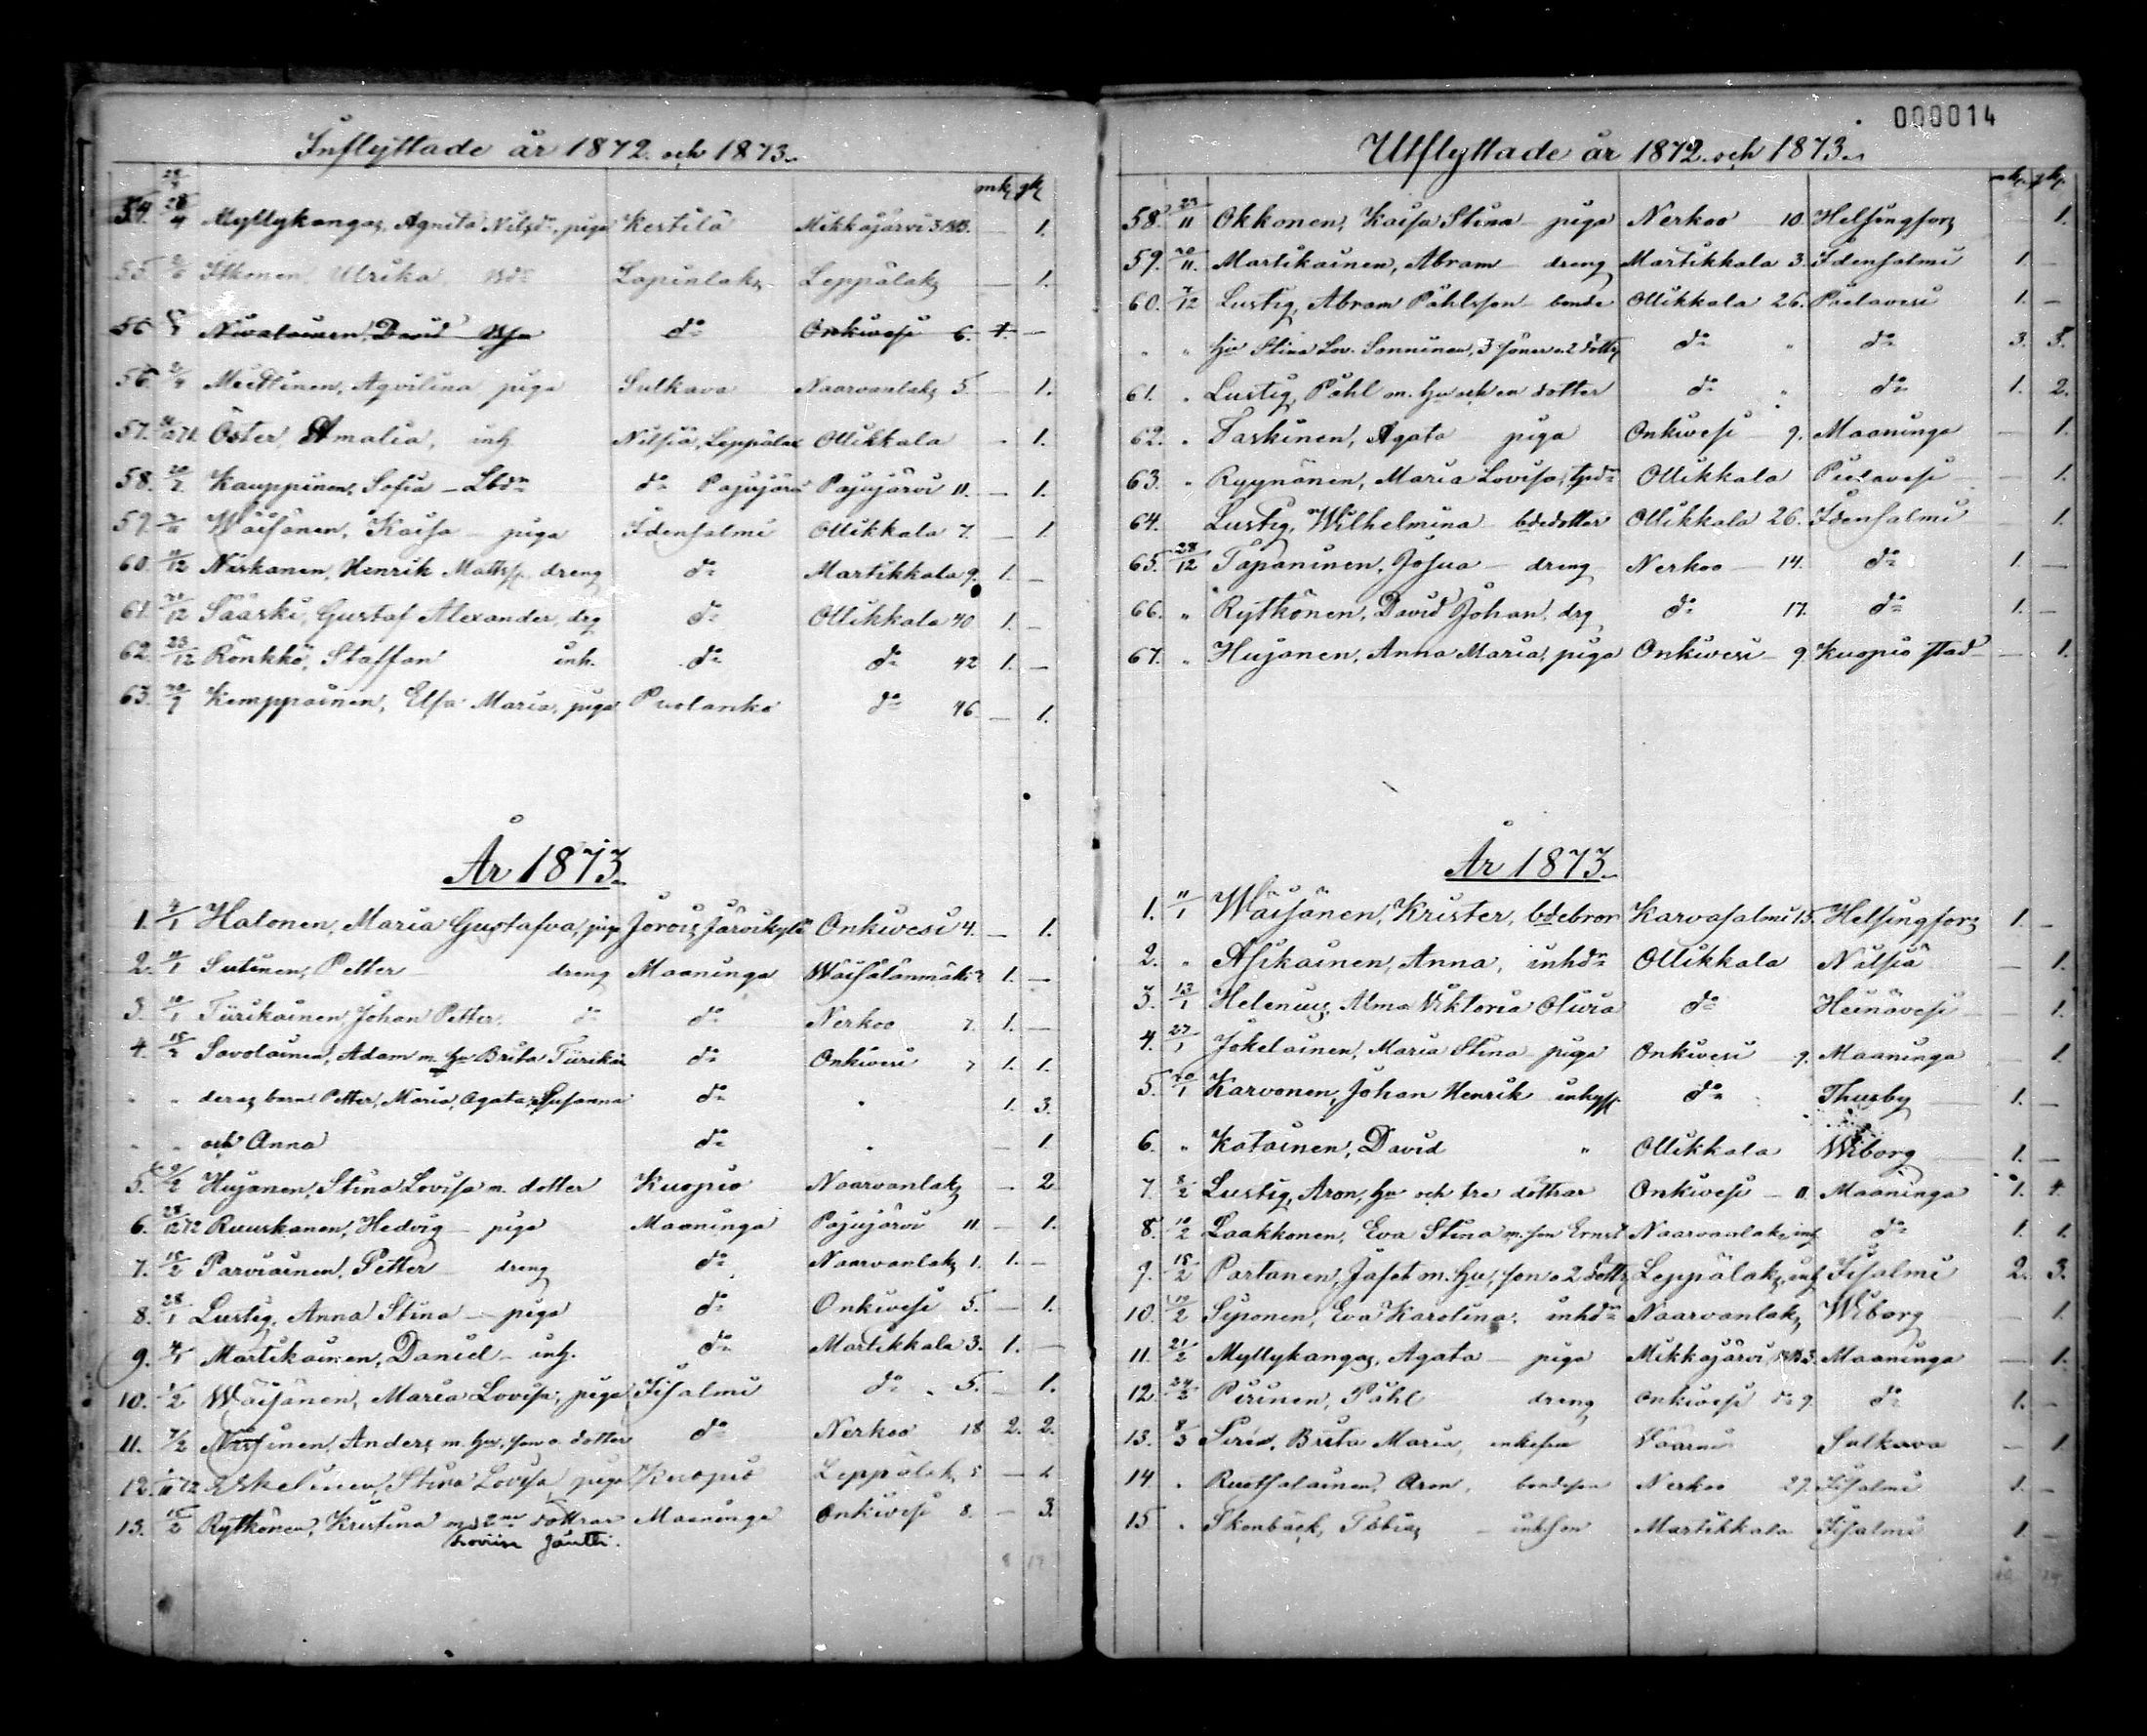 000014
Inflyttade år 1872 och 1873.
mk. qk.
54. 28/4 Myllykangas, Agnita Nilsdr, piga Kestilä Mikkajärvi — 1.
55. Itkonen, Ulrika Lapinlaks Leppälaks — 1.
56 Nivalainen, David do Onkivesi 6. 1. —
56. Miettinen, Aqvilina piga Sulkava Naarvanlaks 5. — 1.
57. Öster, Amalia, inh. Nilsiä, Leppälax Ollikkala - 1.
58. Kauppinen, Sofia — Lbdr do Pajujärvi Pajujärvi 11. — 1.
59. Wäisänen, Kaisa — piga Idensalmi Ollikkala 7. — 1
60. Niskanen, Henrik Matss. dreng do Martikkala 9. 1. —
61. Sääski, Gustaf Alexander, drg do Ollikkala 40 1. —
62. 23/12 Rönkkö, Staffan inh. do do 42 1. —
63. Kemppainen, Elsa Maria, piga Puolanko do 46. — 1.
År 1873.
1. 4/1 Halonen, Maria Gustafva, piga Jorois, Järvikylä Onkivesi 4. — 1.
2. Sutinen, Petter — dreng Maaninga Wäisälänmäki 1. —
3. Tiirikainen, Johan Petter. do do Nerkoo 7. 1. —
4. Savolainen, Adam m. hu Brita Tiirikai do Onkivesi 7 1. 1.
" " deras barn Petter, Maria, Agata, Susanna do " 1. 3.
" " och Anna do " — 1
5. Hujanen, Stina Lovisa m. dotter Kuopio Naarvanlaks - 2
6. 28/12 72 Ruuskanen, Hedvig — piga Maaninga Pajujärvi 11. — 1.
7. 18/2 Parviainen, Petter — dreng do Naarvanlaks 1. 1. —
8. 28/1 Lustig, Anna Stina — piga do Onkivesi 5. — 1.
9. 4/1 Martikainen, Daniel — inh. do Martikkala 3. 1. —
10. 1/2 Wäisänen, Maria Lovisa, piga Iisalmi do " 5. — 1.
11. 7/2 Nissinen, Anders m. hu, son o. dotter do Nerkoo 18 2. 2.
12. Eskelinen, Stina Lovisa, piga Kuopio Leppälaks 5 — 1
13. 18/2 Rytkönen, Kristina med 2ne döttrar Maaninga Onkivesi 8. — 3.
Loviisa Jäntti.
8 19
Utflyttade år 1872 och 1873.
mk. pk.
58. 23/11 Okkonen, Kaisa Stina — piga Nerkoo 10. Helsingfors — 1.
59. 30/11. Martikainen, Abram — dreng Martikkala 3. Idensalmi 1. —
60. 7/12 Lustig, Abram Påhlsson — bonde Ollikkala 26. Pielavesi 1. —
" " hu Stina Lov. Sonninen, 3 söner o. 2 döttr. do " do 3. 3.
61. " Lustig, Påhl m. hu och en dotter do " do 1. 2.
62. " Taskinen, Agata — piga Onkivesi — 9. Maaninga — 1.
63. " Ryynänen, Maria Lovisa, Ollikkala Pielavesi — 1.
64. Lustig, Wilhelmina — bdedotter Ollikkala 26. Idensalmi 1.
65. 28/12 Tapaninen, Josua — dreng Nerkoo — 14. do 1. —
66. " Rytkönen, David Johan, drg do 17. do 1. —
67. " Hujanen, Anna Maria, piga Onkivesi — 9 Kuopio stad — 1.
År 1873.
1. 11/1 Wäisänen, Krister, bdebror Karvasalmi 15. Helsingfors 1. —
2. " Asikainen, Anna, inhdr Ollikkala Nilsiä — 1.
3. 13/1 Helenius, Alma Viktoria Olivia do Heinävesi — 1.
4. 27/1 Jokelainen, Maria Stina — piga Onkivesi 9. Maaninga 1.
5. 30/1 Karvonen, Johan Henrik inhyss. do Thusby — 1. —
6. " Katainen, David " Ollikkala Wiborg — 1. —
7. 8/2 Lustig, Aron, hu och tre döttrar Onkivesi — 11. Maaninga 1. 4.
8. 10/2 Laakkonen, Eva Stina m. son Ernst Naarvanlaks, inh do 1. 1.
9. 18/2 Partanen, Jafet m. hu, son o 2 döttr. Leppälaks, inh Iisalmi 2. 3.
10. 19/2 Siponen, Eva Karolina, inhdr Naarvanlaks Wiborg — 1.
11. 21/2 Myllykangas, Agata — piga Mikkajärvi Maaninga — 1.
12. 24/2 Piirinen, Påhl dreng Onkivesi do 9. do 1. —
13. 8/3 Brita Maria, Sulkava — 1
14. " Ruotsalainen, Aron, bondeson Nerkoo 27. Iisalmi 1. —
15 " Skonbäck, Tobias — inhson Martikkala Iisalmi 1. —